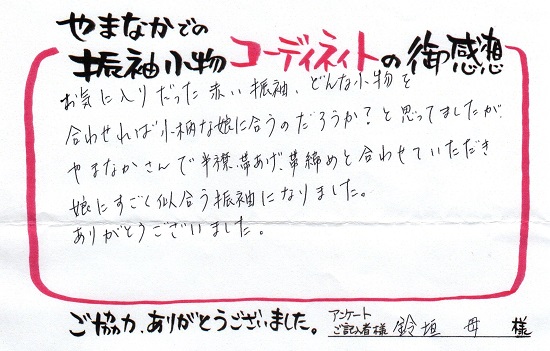 やまなかでの
振袖小物コーディネイトの御感想
お気に入りだった赤い振袖、どんな小物を
合わせれば小柄な娘に合うのだろうか?と思ってましたが
やまなかさんで半襟、帯あげ、帯締めと合わせていただき
娘にすごく似合う振袖になりました。
ありがとうございました。
ご協力、ありがとうございました。
アンケート
ご記入者様 鈴垣 母 様